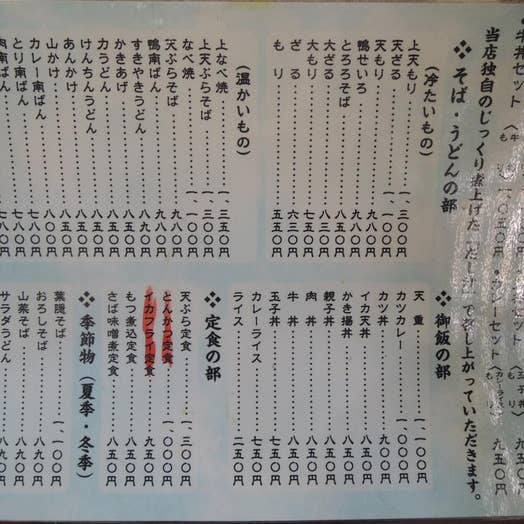 牛丼セット
当店独自のじっくり煮上げた「だし汁」で召し上がっていただきます。
❖そば・うどんの部
(冷たいもの)
上天もり 一、三〇〇円
天ざる
天もり 九八〇円
鴨せいろ 九八〇円
とろろそば 八五〇円
大ざる 八三〇円
大もり 七五〇円
ざる 六三〇円
もり 五五〇円
(温かいもの)
上なべ焼 一、三五〇円
上天ぷらそば 一、三〇〇円
なべ焼 一、〇〇〇円
天ぷらそば 九八〇円
鴨南ばん 九八〇円
すきやきうどん 九五〇円
かきあげ 八五〇円
力うどん 八五〇円
けんちんうどん 八五〇円
あんかけ 八五〇円
山かけ 八五〇円
カレー南ばん 七八〇円
とり南ばん 七八〇円
肉南ばん 七八〇円
❖御飯の部
天重 一、一〇〇円
カツカレー 一、〇〇〇円
カツ丼 九五〇円
イカ天丼 九五〇円
かき揚丼 八五〇円
親子丼 八五〇円
肉丼 八五〇円
牛丼 八五〇円
玉子丼 七五〇円
カレーライス 七五〇円
ライス 二五〇円
❖定食の部
天ぷら定食 一、三〇〇円
とんかつ定食 一、〇〇〇円
イカフライ定食 九五〇円
もつ煮込定食 八五〇円
さば味噌煮定食 八五〇円
❖季節物(夏季・冬季)
葉隠そば 一、一〇〇円
おろしそば 八九〇円
山菜そば 八九〇円
サラダうどん 八九〇円